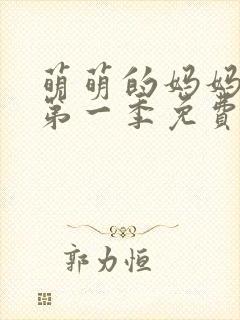 萌萌的妈妈
第一季免費
郭力恒